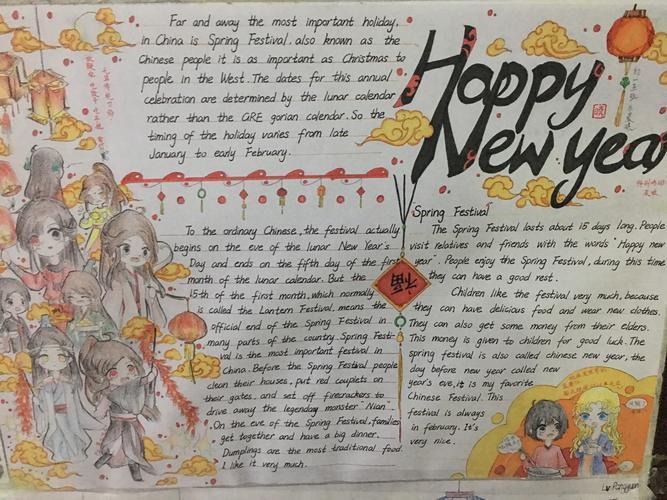 Far and away the most important holiday,
in China is Spring Festival, also known as the
Chinese people it is as important as Christmas to
people in the West. The dates for this annual
celebration are determined by the lunar calendar
rather than the GRE gorian calendar. So the
timing of the holiday varies from late
January to early February.
Happy
New year
To the ordinary Chinese, the festival actually
begins on the eve of the lunar New Year's
Day and ends on the fifth day of the first
month of the lunar calendar. But the
15th of the first month, which normally
is called the Lantern Festival, means the
official end of the Spring Festival in
many parts of the country. Spring Festi-
val is the most important festival in
China. Before the Spring Festival people
clean their houses, put red couplets on
their gates, and set off firecrackers to
drive away the legendary monster "Nian".
On the eve of the Spring Festival, families
get together and have a big dinner.
Dumplings are the most traditional food.
I like it very much.
福
Spring Festival
The Spring Festival lasts about 15 days long. People
visit relatives and friends with the words "Happy new
year". People enjoy the Spring Festival, during this time
they can have a good rest.
Children like the festival very much, because
they can have delicious food and wear new clothes.
They can also get some money from their elders.
This money is given to children for good luck. The
spring festival is also called chinese new year, the
day before new year called new
year's eve, it is my favorite
Chinese Festival. This
festival is always
in february. It's
very nice.